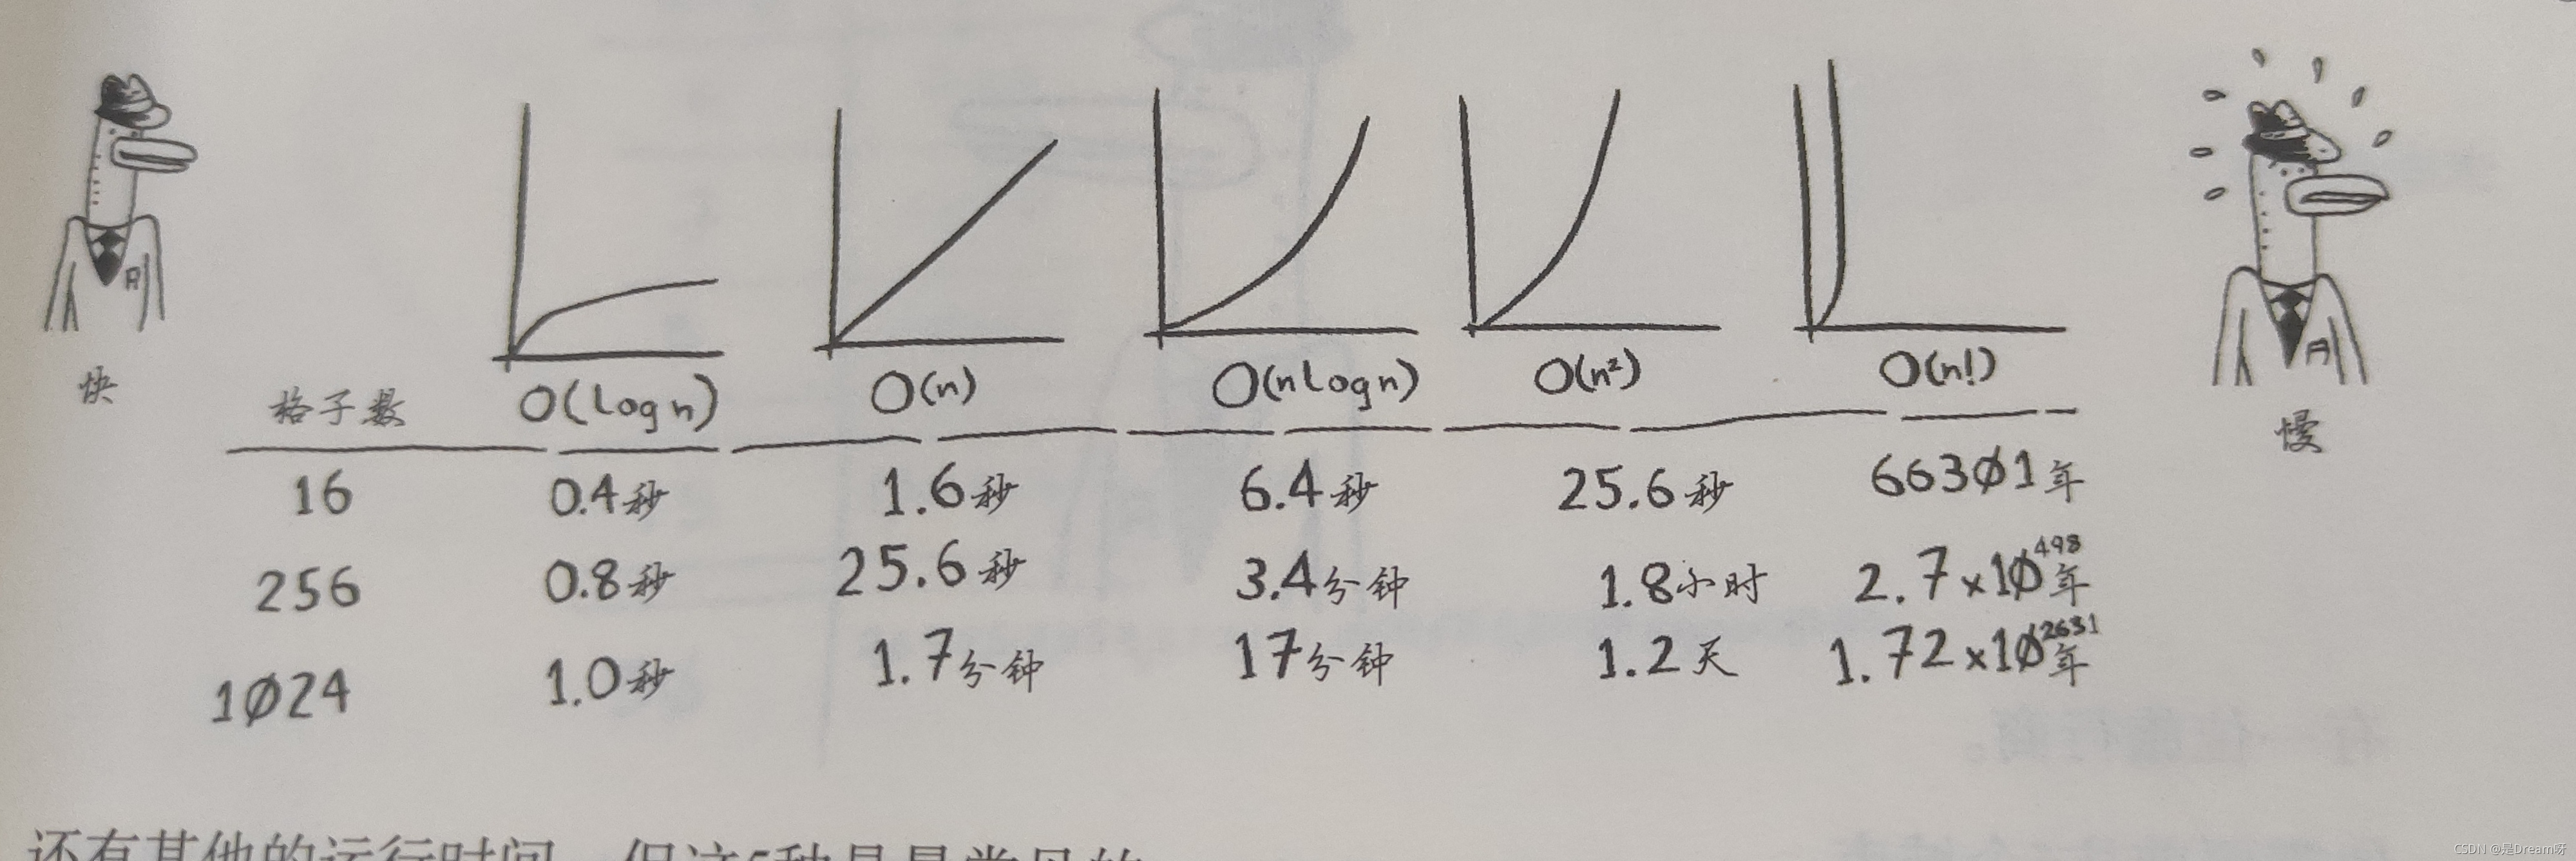 快
格子数 O(logn) O(n) O(nlogn) O(n²) O(n!)
慢
16 0.4秒 1.6秒 6.4秒 25.6秒 66301年
256 0.8秒 25.6秒 3.4分钟 1.8小时 2.7×10⁴⁹⁸年
1024 1.0秒 1.7分钟 17分钟 1.2天 1.72×10²⁶³¹年
还有其他的运行时间，但这5种是最常见的
CSDN @是Dream呀